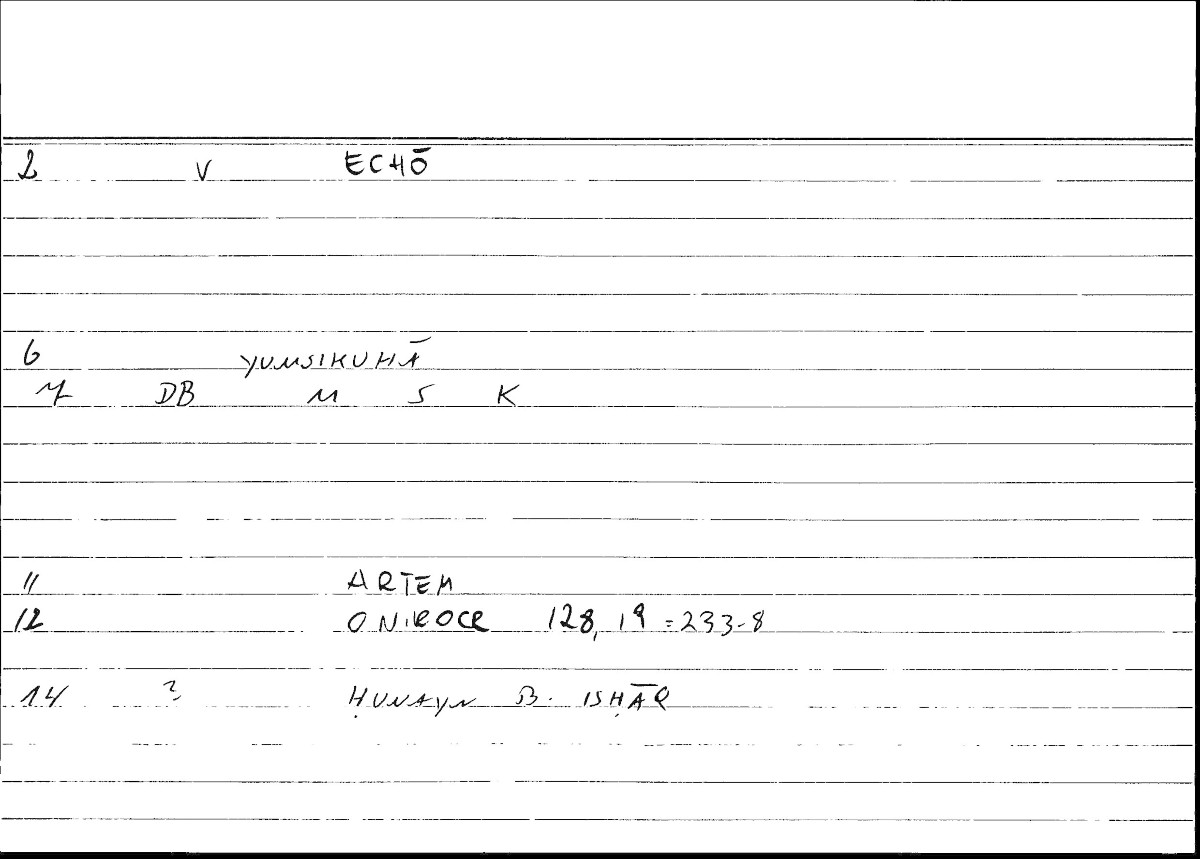 2 V ECHŌ
6 YUMSIKUHĀ
7 DB M S K
11 ARTEM
12 ONIROCR 128, 19 = 233-8
14 ? ḤUNAYN B. ISḤĀQ